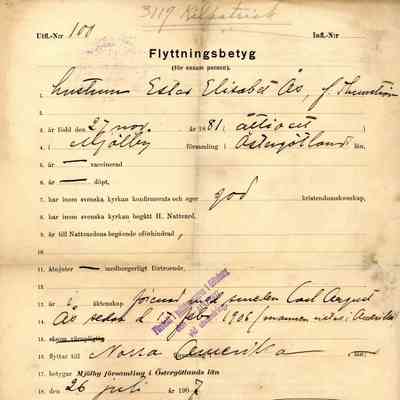 3119 Kilpatrick
Utfl.-N:r 100 Infl.-N:r
Flyttningsbetyg
(för ensam person).
1. hustrun Ester Elisabet Ås, f. Thunström
2.
3. är född den 27 nov. år 1881 (åttioett)
4. i Mjölby församling i Östergötlands län,
5. är — vaccinerad
6. är — döpt,
7. har inom svenska kyrkan konfirmerats och eger god kristendomskunskap,
8. har inom svenska kyrkan begått H. Nattvard,
9. är till Nattvardens begående oförhindrad,
10.
11. Åtnjuter — medborgerligt förtroende,
12.
13. är i äktenskap förenad med smeden Carl August
14. Ås sedan d. 17 feb. 1906 (mannen vistas i Amerika)
15.
16. flyttar till Norra Amerika län:
17. betygar Mjölby församling i Östergötlands län
18. den 26 juli år 1907